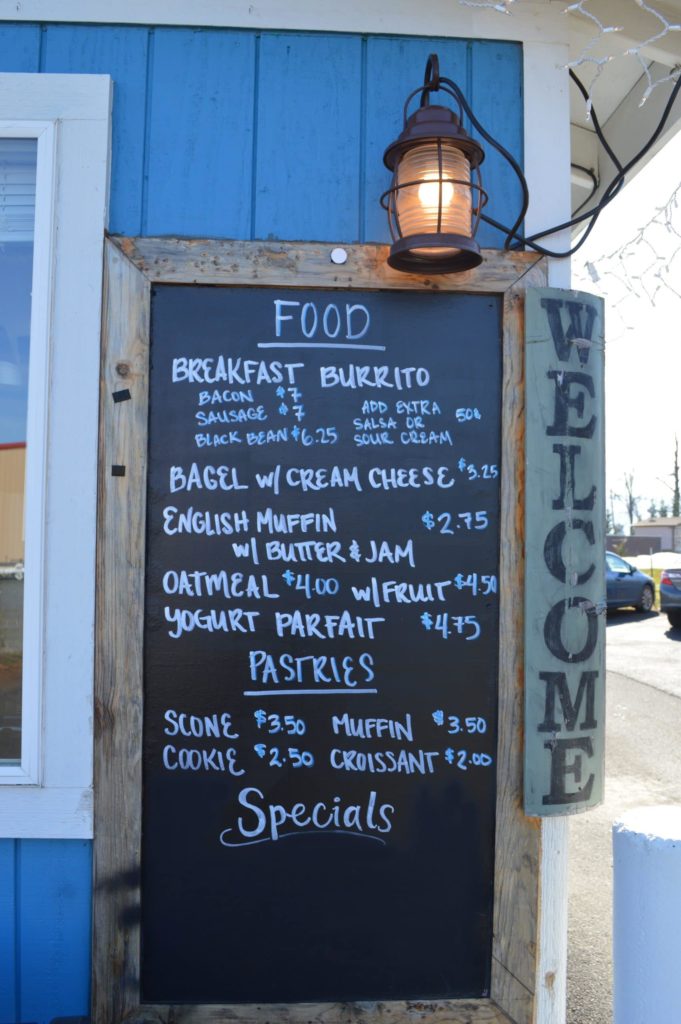 FOOD
BREAKFAST BURRITO
BACON $7
SAUSAGE $7
BLACK BEAN $6.25
ADD EXTRA
SALSA OR 50¢
SOUR CREAM
BAGEL W/ CREAM CHEESE $3.25
ENGLISH MUFFIN $2.75
W/ BUTTER & JAM
OATMEAL $4.00 W/ FRUIT $4.50
YOGURT PARFAIT $4.75
PASTRIES
SCONE $3.50 MUFFIN $3.50
COOKIE $2.50 CROISSANT $2.00
Specials
WELCOME